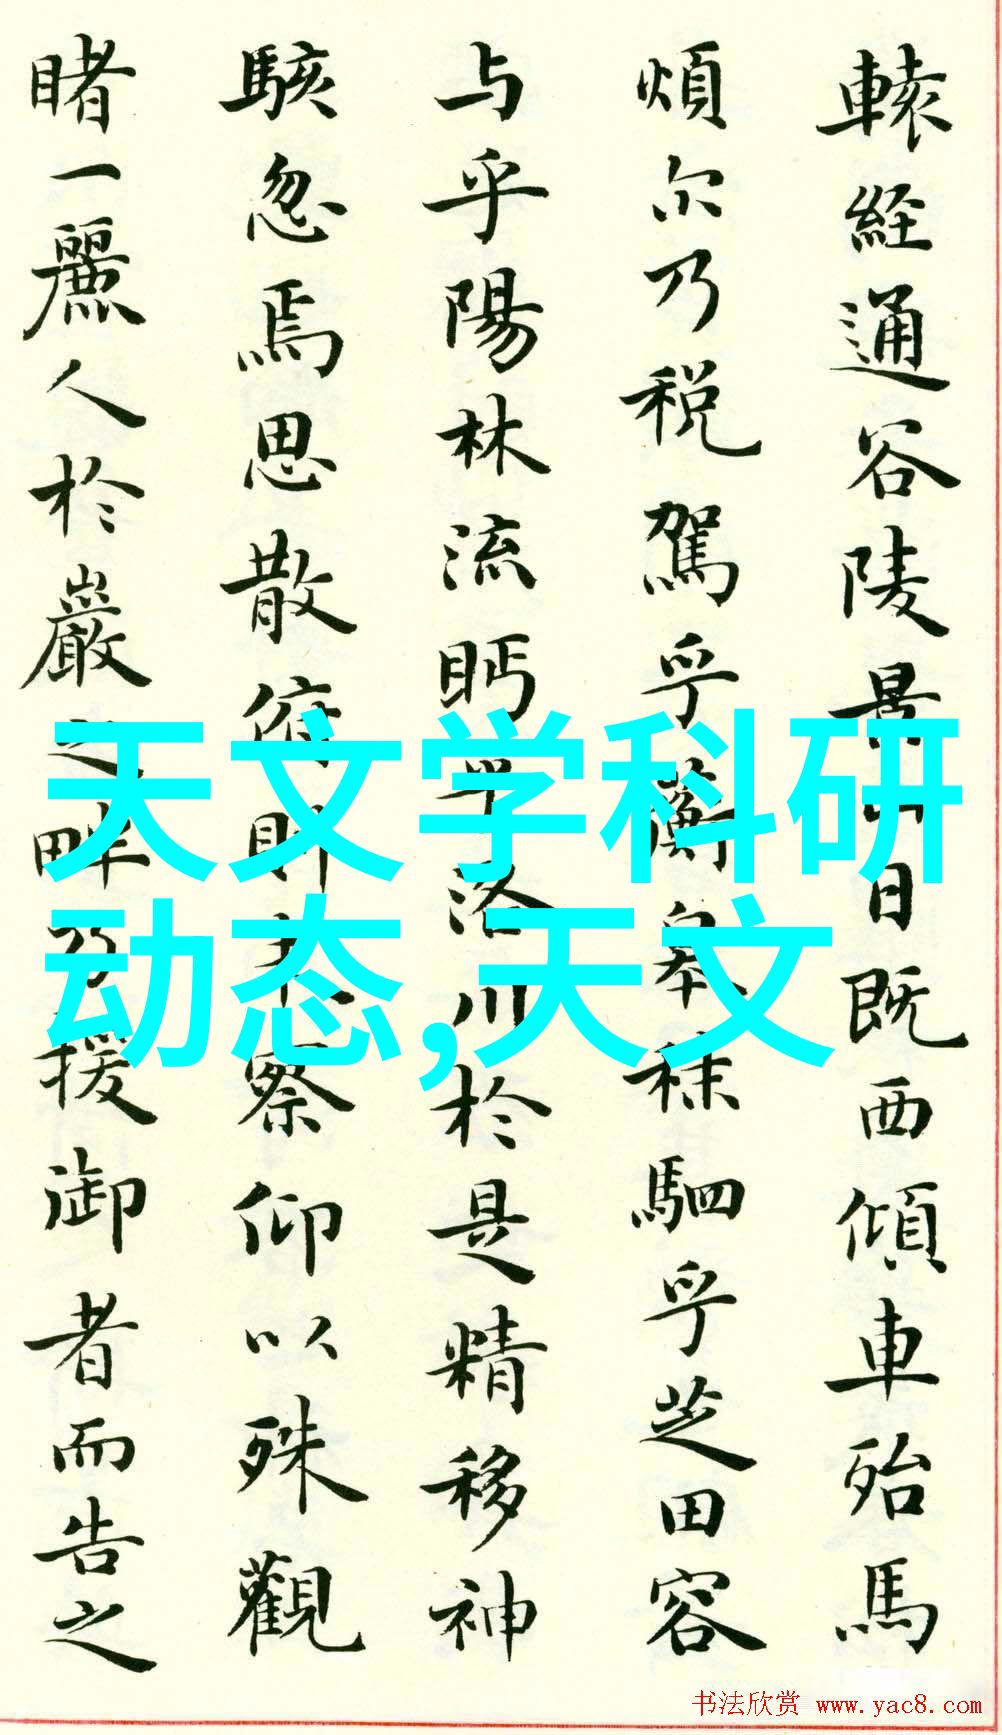 轅経通谷陵景山日既西傾車殆馬
煩尔乃税駕乎蘅皋秣駟乎芝田容
与乎陽林流眄乎洛川於是精移神
駭忽焉思散俯則未察仰以殊觀
睹一麗人於巖之畔乃援御者而告之
天文学科研
动态,天文
书法欣赏 www.yac8.com